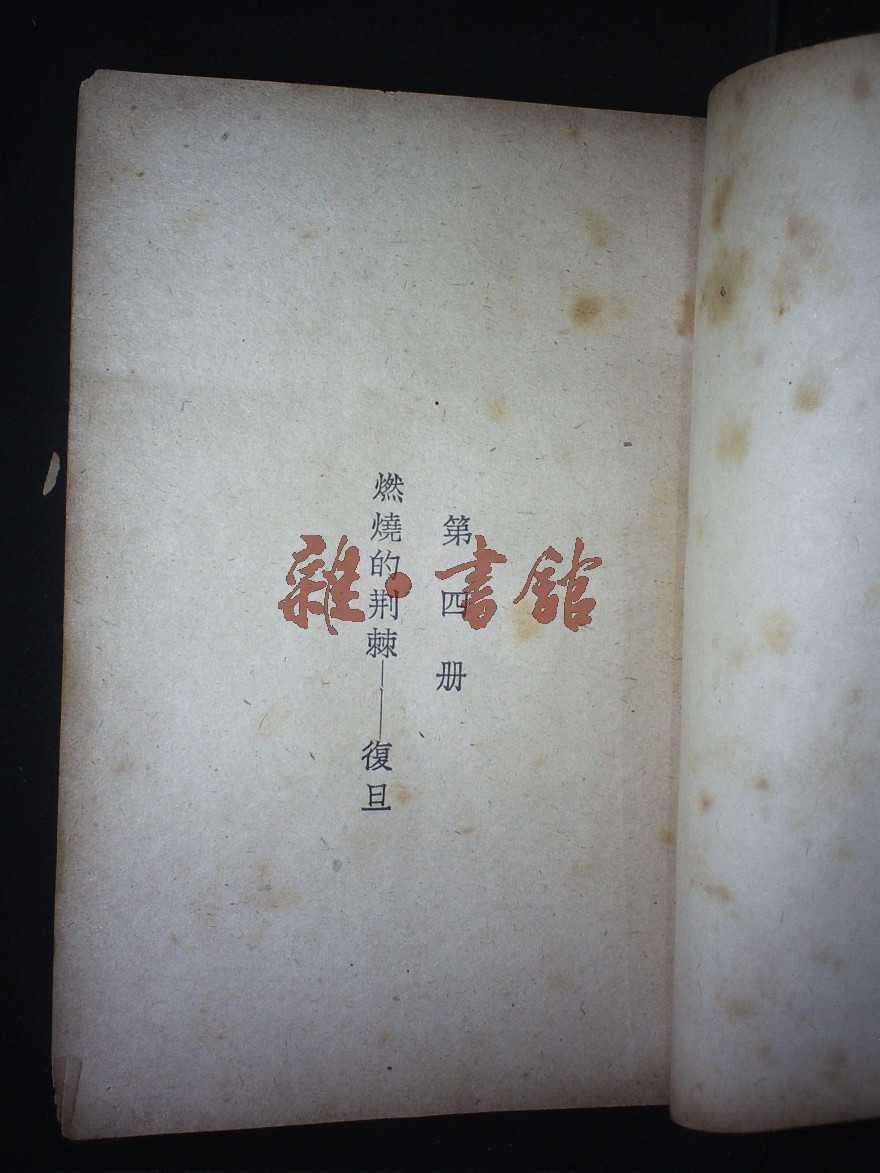 第四册
燃燒的荆棘——復旦
雜·書館